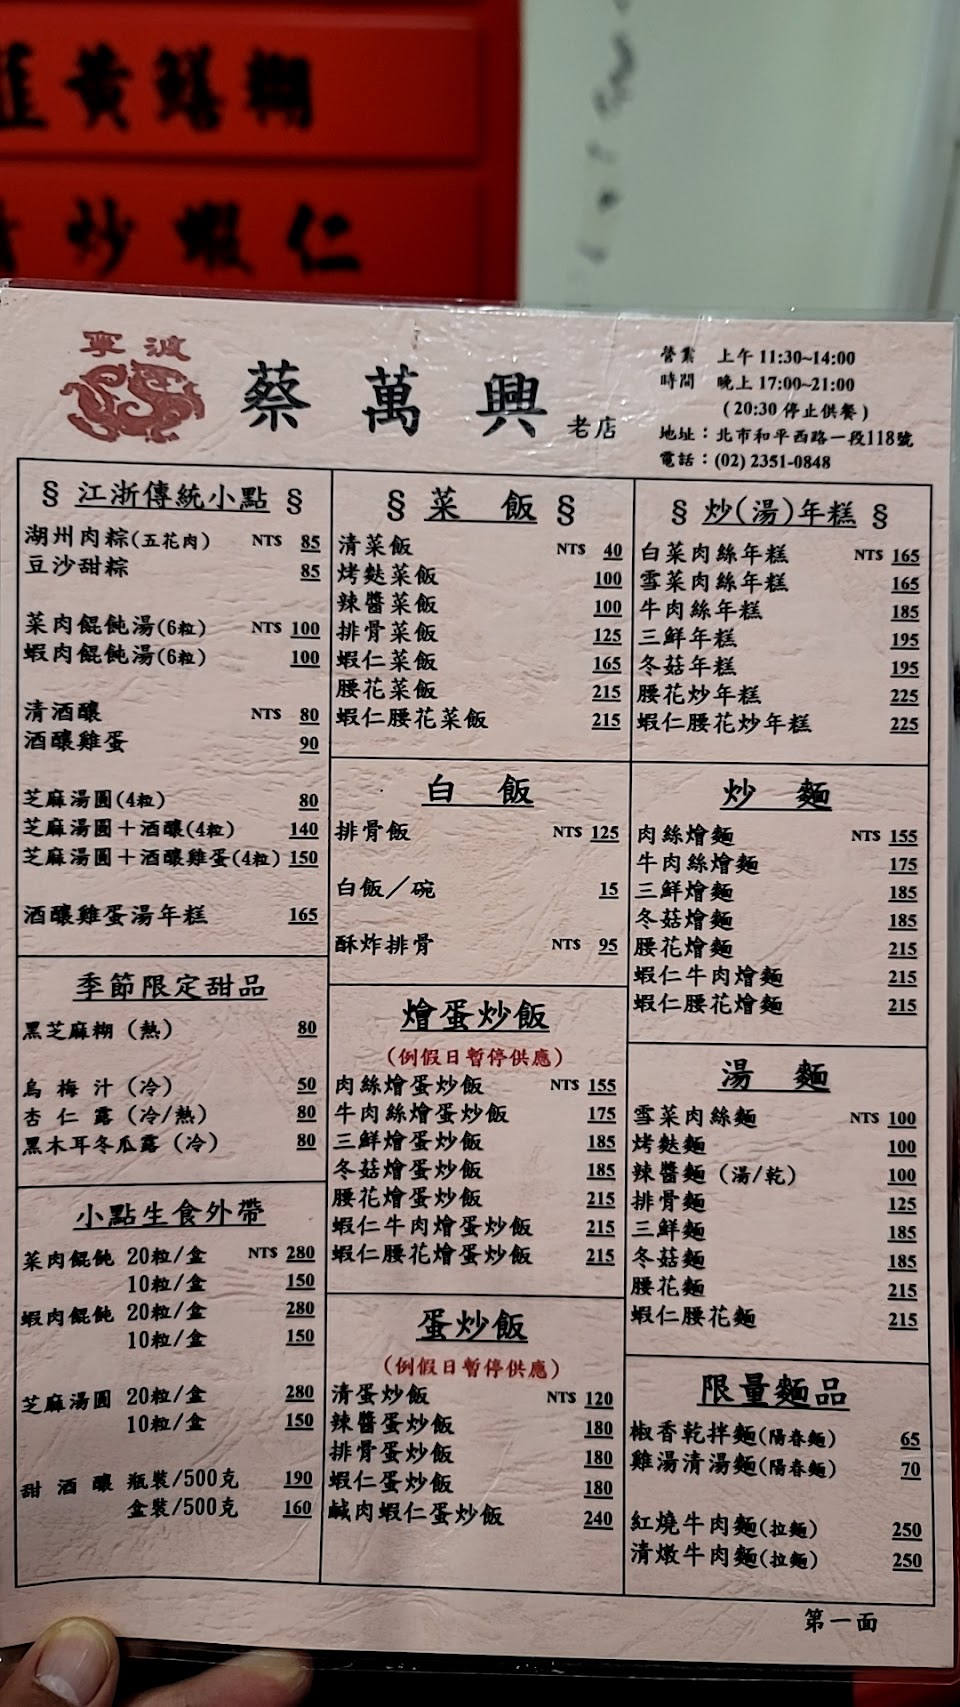 韮黃鱔糊
炒蝦仁
寧波
蔡萬興老店
營業 上午 11:30~14:00
時間 晚上 17:00~21:00
(20:30 停止供餐)
地址：北市和平西路一段118號
電話：(02) 2351-0848
§ 江浙傳統小點 §
湖州肉粽(五花肉) NT$ 85
豆沙甜粽 85
菜肉餛飩湯(6粒) NT$ 100
蝦肉餛飩湯(6粒) 100
清酒釀 NT$ 80
酒釀雞蛋 90
芝麻湯圓(4粒) 80
芝麻湯圓＋酒釀(4粒) 140
芝麻湯圓＋酒釀雞蛋(4粒) 150
酒釀雞蛋湯年糕 165
季節限定甜品
黑芝麻糊（熱） 80
烏梅汁（冷） 50
杏仁露（冷/熱） 80
黑木耳冬瓜露（冷） 80
小點生食外帶
菜肉餛飩 20粒/盒 NT$ 280
10粒/盒 150
蝦肉餛飩 20粒/盒 280
10粒/盒 150
芝麻湯圓 20粒/盒 280
10粒/盒 150
甜酒釀 瓶裝/500克 190
盒裝/500克 160
§ 菜 飯 §
清菜飯 NT$ 40
烤麩菜飯 100
辣醬菜飯 100
排骨菜飯 125
蝦仁菜飯 165
腰花菜飯 215
蝦仁腰花菜飯 215
白 飯
排骨飯 NT$ 125
白飯／碗 15
酥炸排骨 NT$ 95
燴蛋炒飯
(例假日暫停供應)
肉絲燴蛋炒飯 NT$ 155
牛肉絲燴蛋炒飯 175
三鮮燴蛋炒飯 185
冬菇燴蛋炒飯 185
腰花燴蛋炒飯 215
蝦仁牛肉燴蛋炒飯 215
蝦仁腰花燴蛋炒飯 215
蛋炒飯
(例假日暫停供應)
清蛋炒飯 NT$ 120
辣醬蛋炒飯 180
排骨蛋炒飯 180
蝦仁蛋炒飯 180
鹹肉蝦仁蛋炒飯 240
§ 炒(湯)年糕 §
白菜肉絲年糕 NT$ 165
雪菜肉絲年糕 165
牛肉絲年糕 185
三鮮年糕 195
冬菇年糕 195
腰花炒年糕 225
蝦仁腰花炒年糕 225
炒 麵
肉絲燴麵 NT$ 155
牛肉絲燴麵 175
三鮮燴麵 185
冬菇燴麵 185
腰花燴麵 215
蝦仁牛肉燴麵 215
蝦仁腰花燴麵 215
湯 麵
雪菜肉絲麵 NT$ 100
烤麩麵 100
辣醬麵（湯/乾） 100
排骨麵 125
三鮮麵 185
冬菇麵 185
腰花麵 215
蝦仁腰花麵 215
限量麵品
椒香乾拌麵(陽春麵) 65
雞湯清湯麵(陽春麵) 70
紅燒牛肉麵(拉麵) 250
清燉牛肉麵(拉麵) 250
第一面